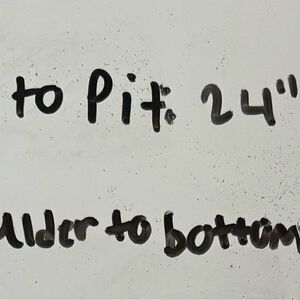 to Pit: 24"
ulder to bottom